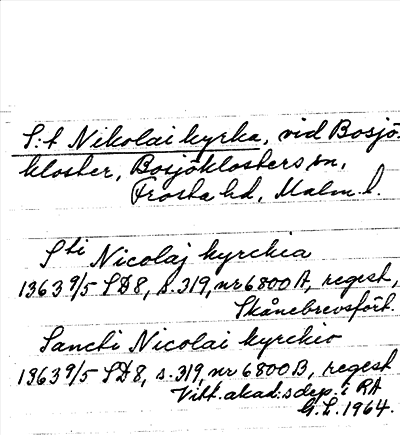 S:t Nikolai kyrka, vid Bosjö-
kloster, Bosjöklosters sn,
Frosta hd, Malm. l.
Sti Nicolaj kyrckia
1363 9/5 SD8, s.319, nr 6800A, regest,
Skånebrevsfört.
Sancti Nicolai kyrckio
1363 9/5 SD8, s.319, nr 6800B, regest
Vitt.akad:s dep. i RA
G.L. 1964.